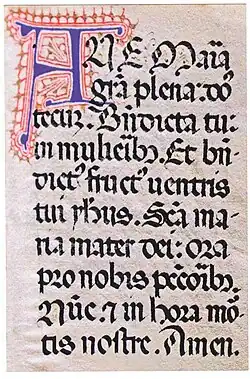 AUE Maria
grā plena: dō
tecū. Bn̄dicta tu:
in mulierib3. Et bn̄
dictꝰ fructꝰ uentris
tui yhus. Scā ma
ria mater dei: ora
pro nobis pctōrib3.
Nūc ⁊ in hora mō
tis nostre. Amen.